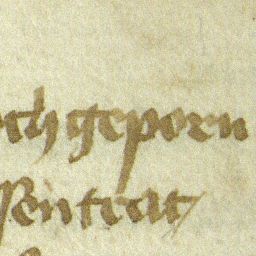 och geporn
sentrat